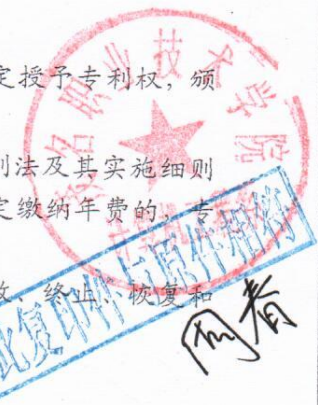 定授予专利权，颁
利法及其实施细则
定缴纳年费的，专
效、终止、恢复和
茂名职业技术学院
此复印件与原件相符